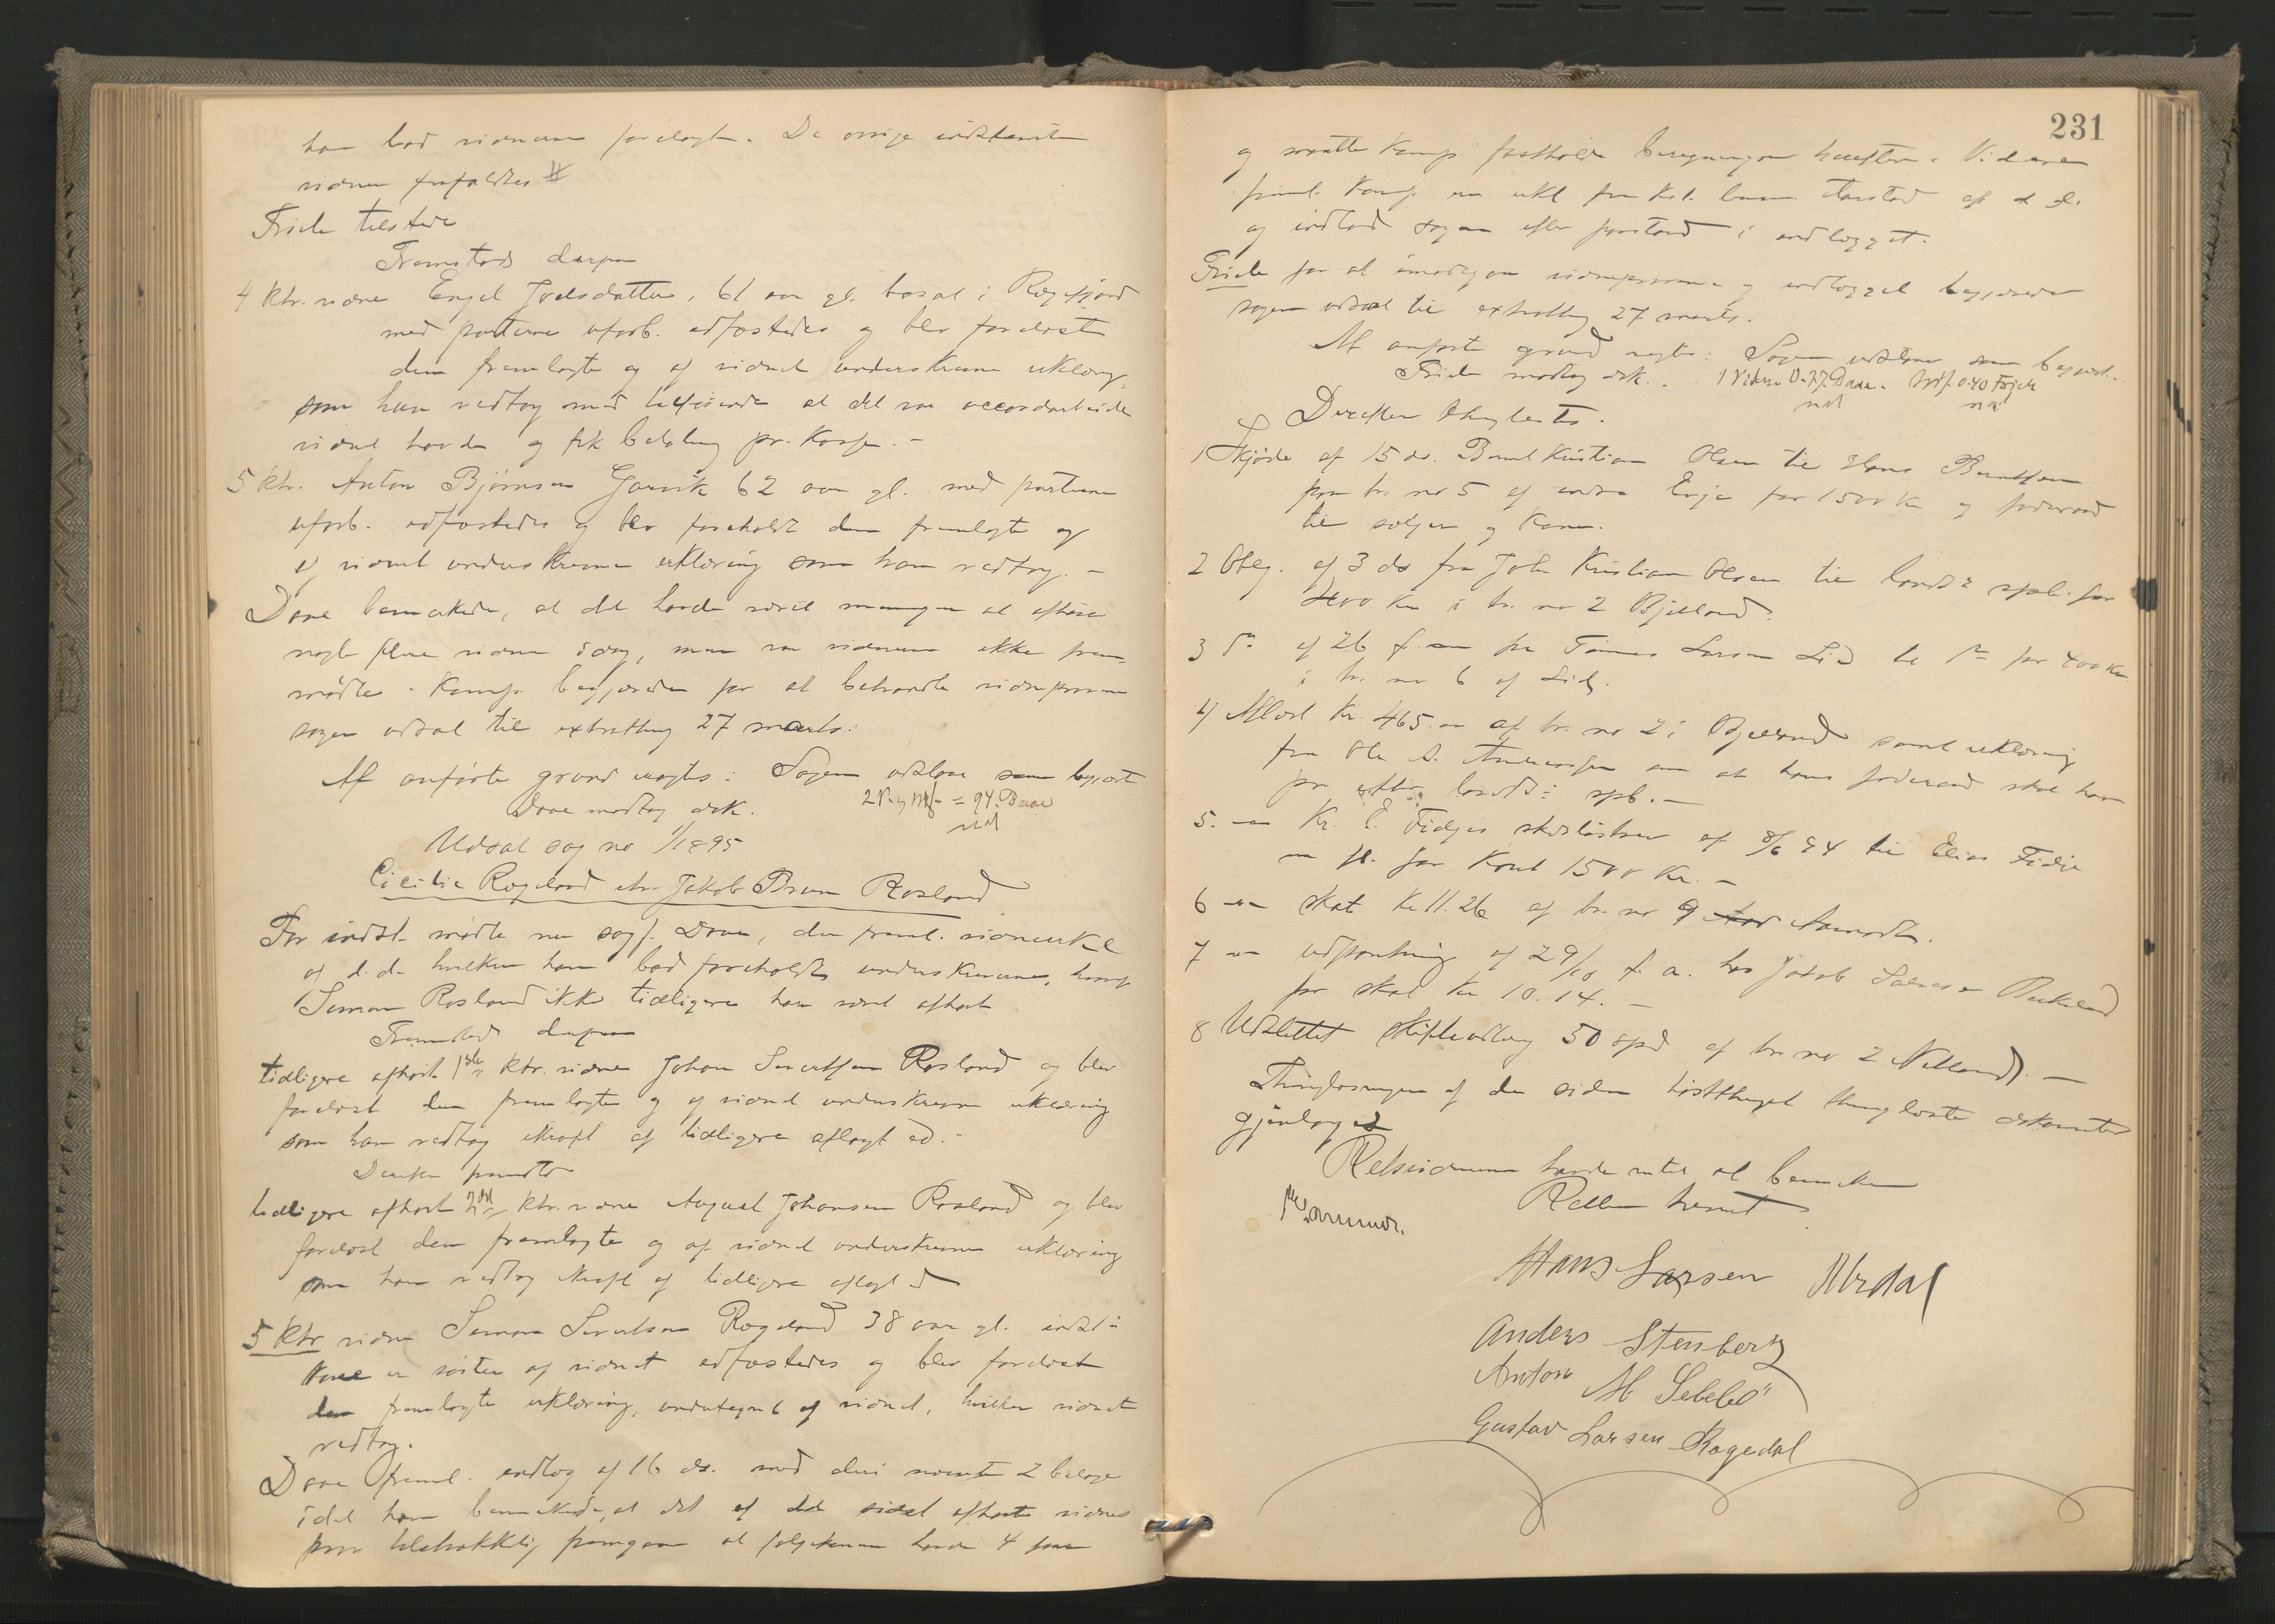 han bad vidnerne forelagt. De øvrige indstevnte
vidner frafaldtes #
Friele tilstede
Fremstod derpaa
4 ktr. vidne Engel Joelsdatter, 61 aar gl. bosat i Rægefjord
med parterne uforb. edfæstedes og blev forelæst
den fremlagte og af vidnet underskrevne erklæring,
som hun vedtog med tilføiende at det var accordarbeide
vidnet havde og fik betaling pr. kasse. –
5 ktr. Anton Bjørnsen Jarvik 62 aar gl. med parterne
uforb. edfæstedes og blev foreholdt den fremlagte og
af vidnet underskrevne erklæring som han vedtog. –
Daae bemærkede, at det havde været meningen at afhøre
nogle flere vidner idag, men var vidnerne ikke frem-
mødte. Kemp begjærede for at behandle vidneprovene
sagen udsat til extratting 27 marts.
Af anførte grund eragtes: Sagen udstaar som begjært
Daae modtog dsk.
Udsat sag no 1/1895
Cicilie Rægeland ctr. Jakob Bruun Rosland
For indst. mødte nu sagf. Daae, der freml. vidneerkl.
af d.d. hvilken han bad foreholdt underskriverne, hvoraf
Simon Rosland ikke tidligere har været afhørt
Fremstod derpaa
tidligere afhørt 1ste ktr. vidne Johan Sivertsen Rosland og blev
forelæst den fremlagte og af vidnet underskrevne erklæring
som han vedtog ikraft af tidligere aflagt ed. –
Derpaa fremstod
tidligere afhørt 2det ktr. vidne August Johansen Rosland og blev
forelæst den fremlagte og af vidnet underskrevne erklæring
som han vedtog ikraft af tidligere aflagt ed
5 ktr vidne Simon Sivertsen Rægeland 38 aar gl. indst.
kone er søster af vidnet edfæstedes og blev forelæst
den fremlagte erklæring, undertegnet af vidnet, hvilken vidnet
vedtog.
Daae freml. indlæg af 16 ds. med deri nævnte 2 bilage
idet han bemærkede, at det af de sidst afhørte vidners
prov tilstrækkelig fremgaar at følgekonen havde 4
231
og maatte Kemp. fastholde beregningen herefter. Videre
freml. Kemp en erkl. fra af d.d.
og indlod sagen efter paastand i indlægget.
Friele for at imødegaa vidneprovene og indlægget begjærede
sagen udsat til extratting 27 marts.
Af anførte grund eragtes: Sagen udstaar som begjært.
Friele modtog dsk.
Derefter thinglæstes.
1 Skjøde af 15 ds. Bernt Kristian Olsen til Hans Berntsen
paa br. no 5 af indre Eeje for 1500 kr og føderaad
til sælger og kone.
2 Oblg. af 3 ds fra John Kristian Olsen til for
400 kr i br. no 2 Bjelland.
3 Do af 26 f.m fra Tønnes Larsen Lid til do for 400 kr
i br. no 6 af Lid.
4) Aflæst kr. 465.– af br. no 2 i Bjelland samt erklæring
fra Ole A. Andreassen om at hans føderaad skal have
pr. efter
5. – Kr. E. Fidjes skadesløsbrev af 8/6 94 til Elias Fidje
for kont 1500 kr. –
6 – skat kr 11.26 af br. no 9 Aamodt.
7 – udpantning af 29/10 f.a. hos Jakob Salvesen
for skat kr 10.14. –
8 Udslettet skifteudlæg 50 spd af br. no 2 –
Thinglæsningen af de siden høstthinget thinglæste dokumenter
gjentoges
Retsvidnerne havde intet at bemærke
Retten hævet
Hans Larsen Mydal
Anders Stenberg
Anton M Sebebø
Gustav Larsen Rægedal